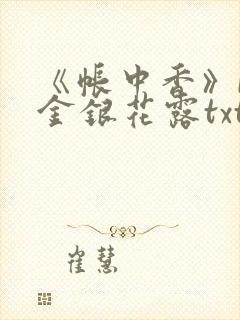 《帐中香》
金银花露txt
崔慧